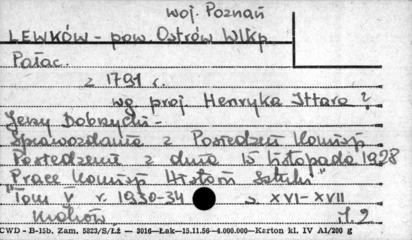 woj. Poznań
LEWKÓW - pow. Ostrów Wlkp.
Pałac.
z 1791 r.
wg. proj. Henryka Ittara ?
Jerzy Dobrzycki -
Sprawozdania z Posiedzeń Komisji
Posiedzenie z dnia 15 listopada 1928
Prace Komisji Historii Sztuki"
"Tom V r. 1930-34 s XVI-XVII
Kraków
CWD - B-15b. Zam. 5823/S/Łż — 3016—Łak—15.11.56—4.000.000—Karton kl. IV A1/200 g